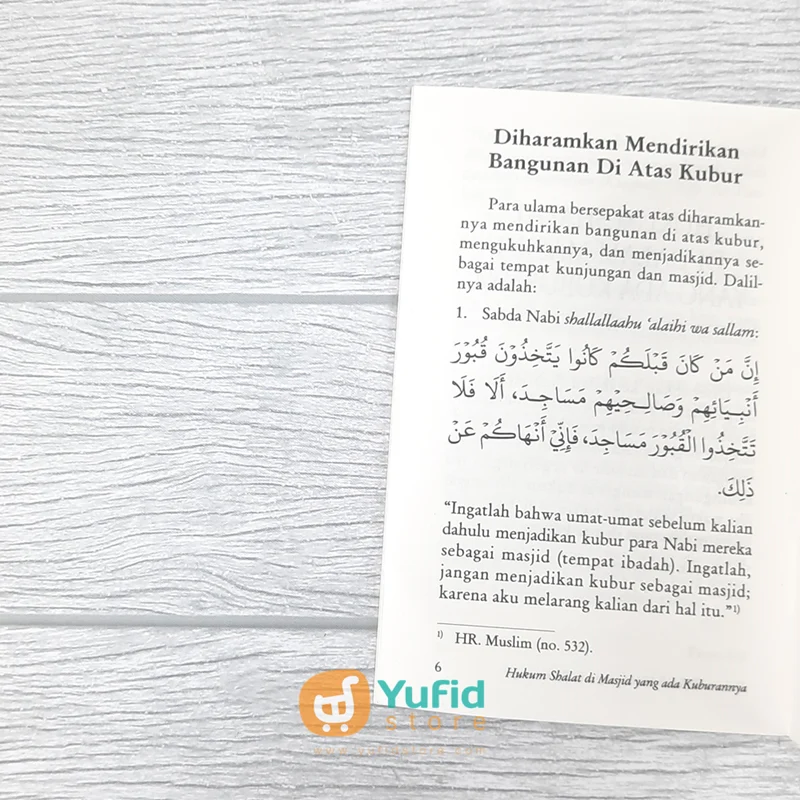 Diharamkan Mendirikan
Bangunan Di Atas Kubur
Para ulama bersepakat atas diharamkan-
nya mendirikan bangunan di atas kubur,
mengukuhkannya, dan menjadikannya se-
bagai tempat kunjungan dan masjid. Dalil-
nya adalah:
1. Sabda Nabi shallallaahu ‘alaihi wa sallam:
إِنَّ مَنْ كَانَ قَبْلَكُمْ كَانُوا يَتَّخِذُوْنَ قُبُوْرَ
أَنْبِيَائِهِمْ وَصَالِحِيْهِمْ مَسَاجِدَ، أَلَا فَلَا
تَتَّخِذُوا الْقُبُوْرَ مَسَاجِدَ، فَإِنِّيْ أَنْهَاكُمْ عَنْ
ذَلِكَ.
“Ingatlah bahwa umat-umat sebelum kalian
dahulu menjadikan kubur para Nabi mereka
sebagai masjid (tempat ibadah). Ingatlah,
jangan menjadikan kubur sebagai masjid;
karena aku melarang kalian dari hal itu.”¹⁾
¹⁾ HR. Muslim (no. 532).
6 Hukum Shalat di Masjid yang ada Kuburannya
Yufid
store